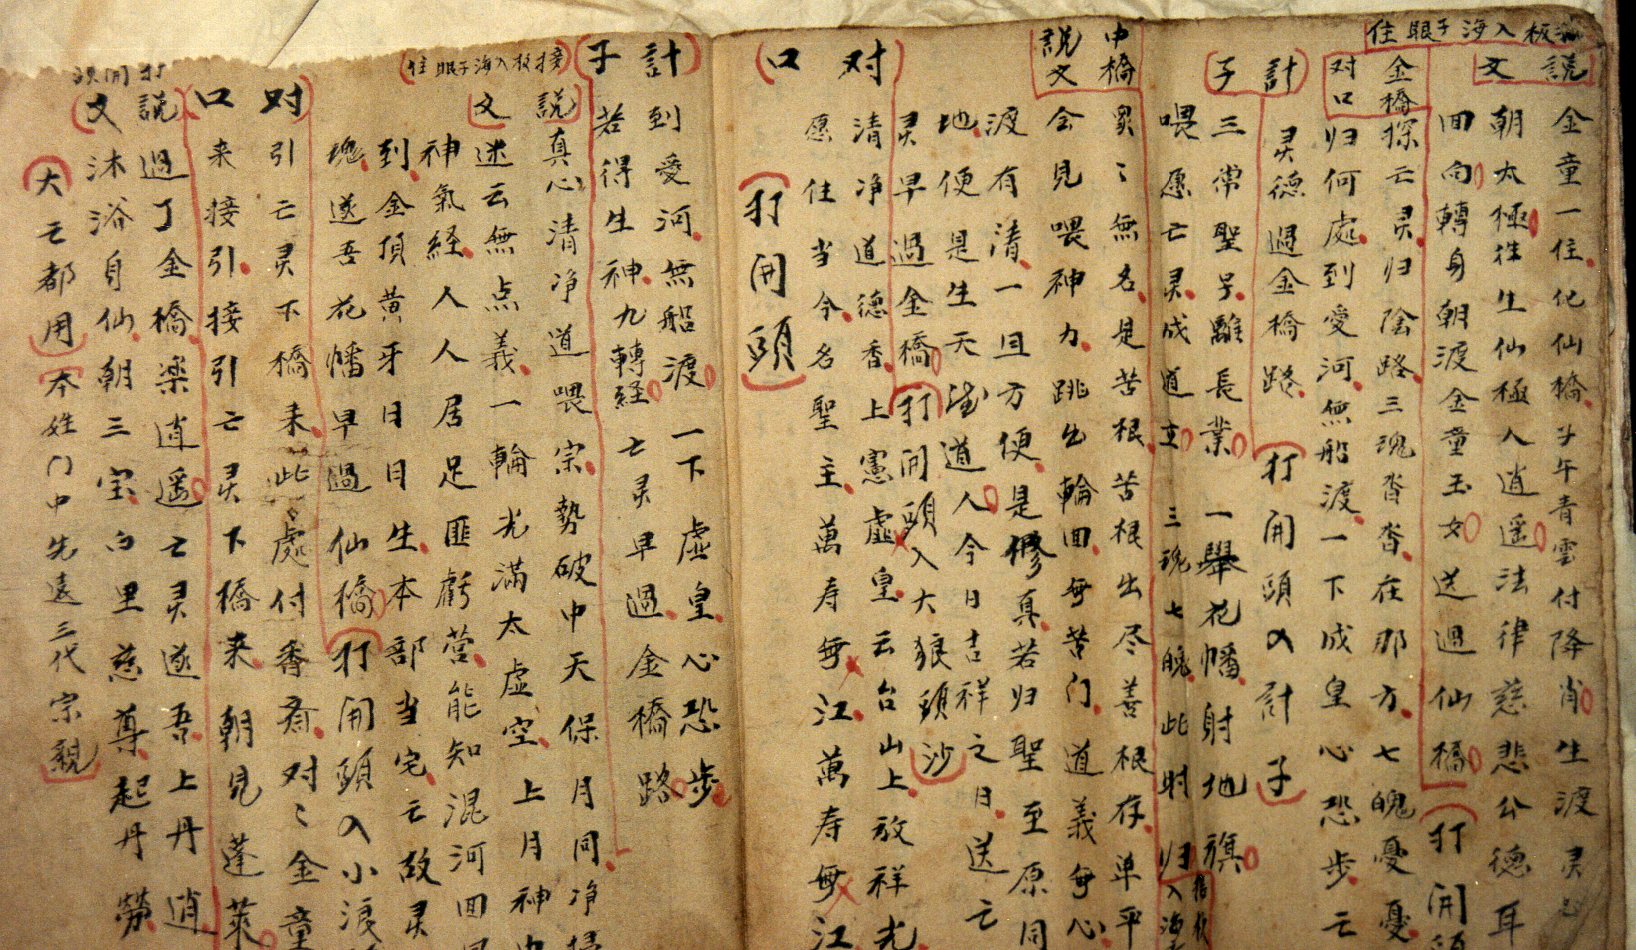 接板入海子眼住
說文
金童一住化仙橋子午青雲付降消生渡灵
朝太極往生仙極入逍遥法律慈悲公德耳
回向轉身朝渡金童玉女送過仙橋打開
金橋
对口
探亡灵归陰路三魂杳杳在那方七魄憂憂
归何處到愛河無船渡一下成皇心恐步亡
計子
灵德過金橋路打開頭入計子
三常聖号離長業一舉花幡射地旗
喂愿亡灵成道立三魂七魄此时归
中橋
說文
累〻無名是苦根苦根出尽善根存单平
会見喂神力跳出輪回每苦门道義每心
渡有清一旦方便是修真若归聖至原同
地便是生天道人今日吉祥之日送亡
灵早過金橋打開頭入大狼頭沙
对口
清净道德香上憲虚皇云台山上放祥光
愿住当今名聖主萬寿每江萬寿每江
打開頭
計子
到愛河無船渡一下虚皇心恐步
若得生神九轉経亡灵早過金橋路
接板入海子眼住
說文
真心清净道喂宗勢破中天保月同净
迷云無点義一輪光滿太虚空上月神
神氣経人人居足匪虧营能知混河回
到金頂黄牙日月日生本部当宅亡故灵
魂遂吾花幡早過仙橋打開頭入小浪
对口
引亡灵下橋来此處付香斎对〻金童
来接引接引亡灵下橋来朝見蓬萊
打開頭
說文
過了金橋楽逍遥亡灵遂吾上丹逍
沐浴身仙朝三宝白里慈尊起丹勞
大亡都用本姓门中先遠三代宗親